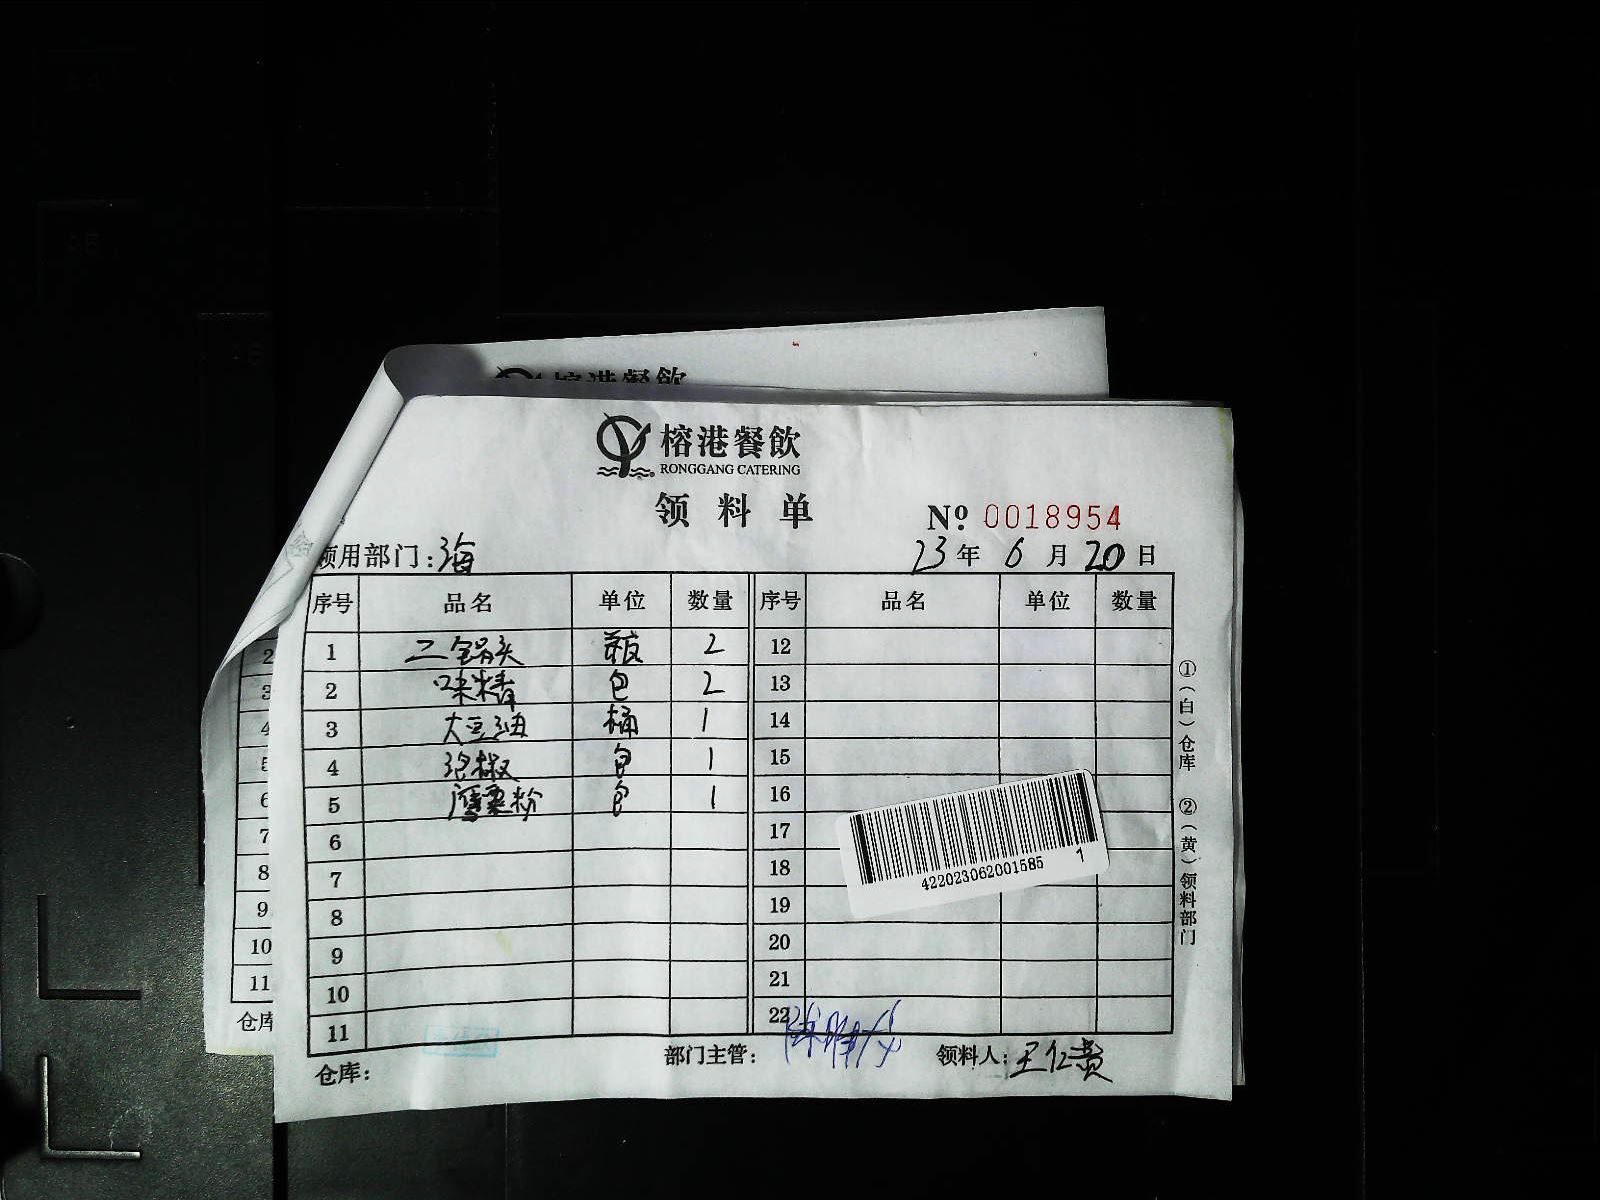 榕港餐飲
榕港餐飲
RONGGANG CATERING
领料单
Nº 0018954
领用部门:海
23年6月20日
序号 品名 单位 数量 序号 品名 单位 数量
1 二锅头 瓶 2 12
2 味精 包 2 13
3 大豆油 桶 1 14
4 泡椒 包 1 15
5 鹰粟粉 包 1 16
6 17
7 18
8 19
9 20
10 21
11 22
422023062001585 1
仓库: 部门主管: 领料人:王仁贵
①(白)仓库 ②(黄)领料部门
2
3
4
5
6
7
8
9
10
11
仓库